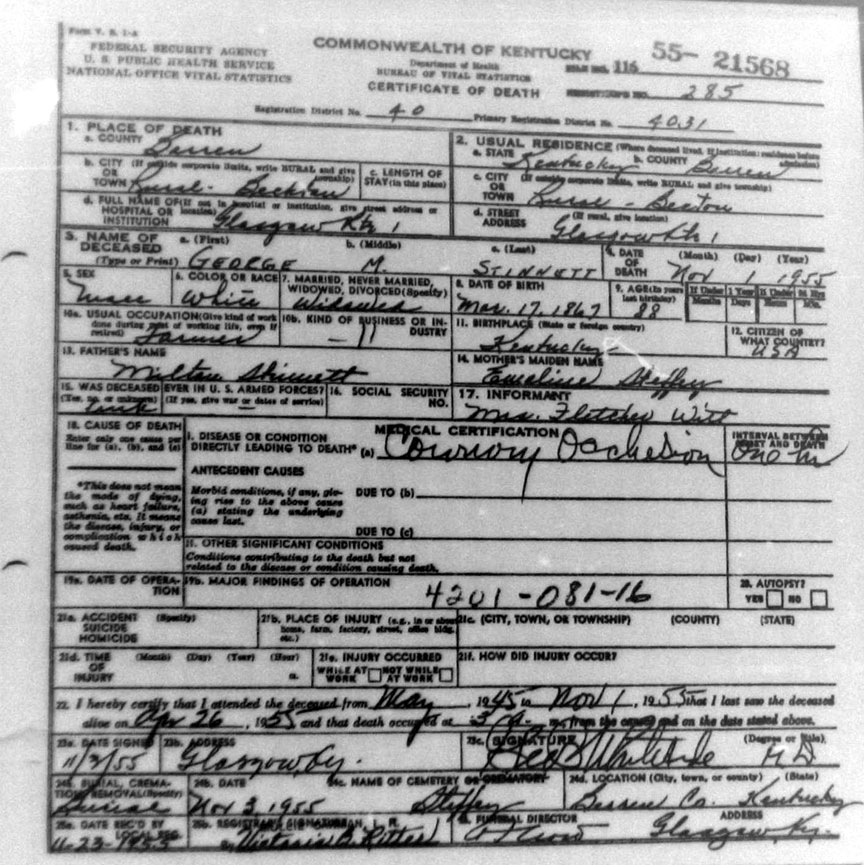 Form V. S. 1-A
FEDERAL SECURITY AGENCY
U. S. PUBLIC HEALTH SERVICE
NATIONAL OFFICE VITAL STATISTICS
COMMONWEALTH OF KENTUCKY
Department of Health
BUREAU OF VITAL STATISTICS
CERTIFICATE OF DEATH
FILE NO. 116 55- 21568
REGISTRAR'S NO. 285
Registration District No. 40 Primary Registration District No. 4031
1. PLACE OF DEATH
a. COUNTY Barren
2. USUAL RESIDENCE (Where deceased lived. If institution: residence before admission)
a. STATE Kentucky b. COUNTY Barren
b. CITY (If outside corporate limits, write RURAL and give township) OR TOWN Rural-
c. LENGTH OF STAY (in this place)
c. CITY (If outside corporate limits, write RURAL and give township) OR TOWN Rural -
d. FULL NAME OF (If not in hospital or institution, give street address or location) HOSPITAL OR INSTITUTION Glasgow Rt 1
d. STREET ADDRESS (If rural, give location) Glasgow Rt 1
3. NAME OF DECEASED (Type or Print)
a. (First) GEORGE b. (Middle) M. c. (Last) STINNETT
4. DATE OF DEATH (Month) (Day) (Year) Nov 1 1955
5. SEX Male
6. COLOR OR RACE White
7. MARRIED, NEVER MARRIED, WIDOWED, DIVORCED (Specify) Widowed
8. DATE OF BIRTH Mar. 17. 1867
9. AGE (In years last birthday) 88 If Under 1 Year Months Days If Under 24 Hrs Hours Min.
10a. USUAL OCCUPATION (Give kind of work done during most of working life, even if retired) Farmer
10b. KIND OF BUSINESS OR INDUSTRY
11. BIRTHPLACE (State or foreign country) Kentucky
12. CITIZEN OF WHAT COUNTRY? USA
13. FATHER'S NAME Milton Stinnett
14. MOTHER'S MAIDEN NAME Emeline Steffey
15. WAS DECEASED EVER IN U. S. ARMED FORCES? (Yes, no, or unknown) (If yes, give war or dates of service) unk
16. SOCIAL SECURITY NO.
17. INFORMANT Mrs. Fletcher Witt
18. CAUSE OF DEATH
Enter only one cause per line for (a), (b), and (c)
MEDICAL CERTIFICATION
I. DISEASE OR CONDITION DIRECTLY LEADING TO DEATH* (a) Coronary Occlusion
INTERVAL BETWEEN ONSET AND DEATH
*This does not mean the mode of dying, such as heart failure, asthenia, etc. It means the disease, injury, or complication which caused death.
ANTECEDENT CAUSES
Morbid conditions, if any, giving rise to the above cause (a) stating the underlying cause last.
DUE TO (b)
DUE TO (c)
II. OTHER SIGNIFICANT CONDITIONS
Conditions contributing to the death but not related to the disease or condition causing death.
19a. DATE OF OPERATION
19b. MAJOR FINDINGS OF OPERATION
4201-081-16
20. AUTOPSY?
YES NO
21a. ACCIDENT SUICIDE HOMICIDE (Specify)
21b. PLACE OF INJURY (e.g., in or about home, farm, factory, street, office bldg. etc.)
21c. (CITY, TOWN, OR TOWNSHIP) (COUNTY) (STATE)
21d. TIME OF INJURY (Month) (Day) (Year) (Hour) m.
21e. INJURY OCCURRED
WHILE AT WORK NOT WHILE AT WORK
21f. HOW DID INJURY OCCUR?
22. I hereby certify that I attended the deceased from May, 1945 to Nov 1, 1955 that I last saw the deceased
alive on Apr 26, 1955 and that death occurred at 3 A. m., from the causes and on the date stated above.
23a. DATE SIGNED 11/3/55
23b. ADDRESS Glasgow, Ky.
23c. SIGNATURE (Degree or title) M D
24a. BURIAL, CREMATION, REMOVAL (Specify) Burial
24b. DATE Nov 3 1955
24c. NAME OF CEMETERY OR CREMATORY Steffey
24d. LOCATION (City, town, or county) (State) Barren Co. Kentucky
25a. DATE REC'D BY LOCAL REG. 11-23-1955
25b. REGISTRAR'S SIGNATURE
FUNERAL DIRECTOR ADDRESS Glasgow, Ky.